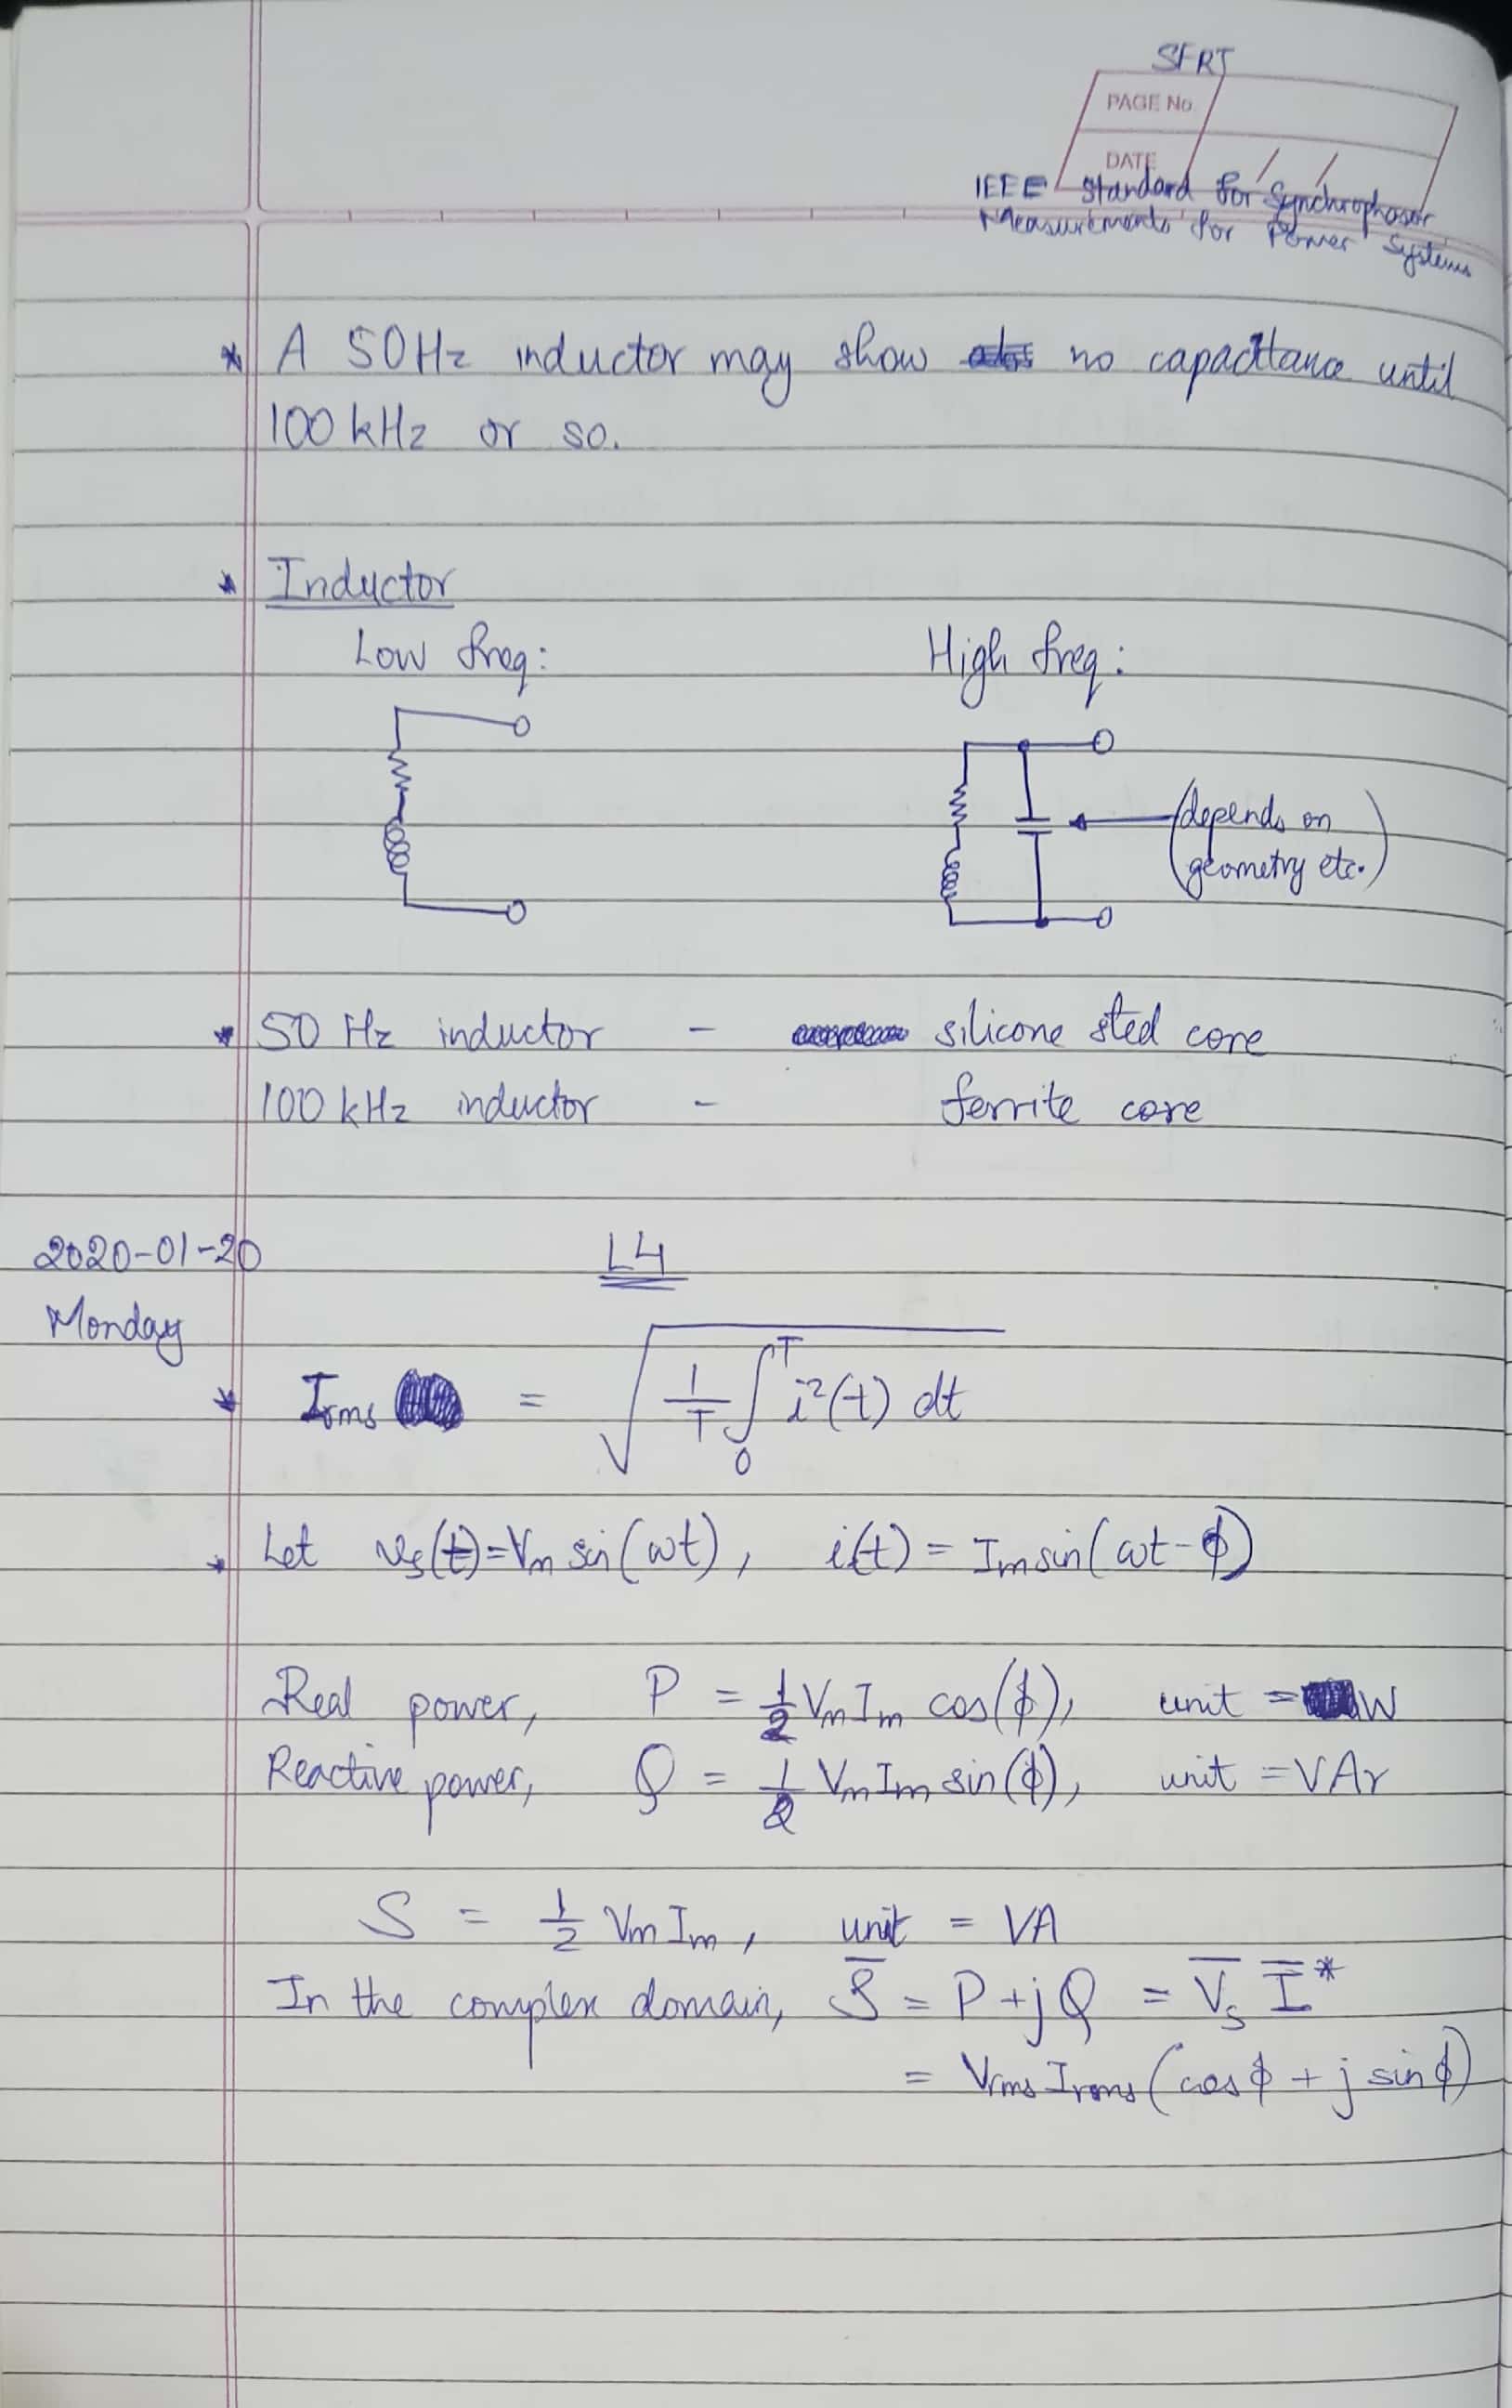 SFRT
PAGE No
DATE / /
IEEE Standard for Synchrophasor
Measurements for Power Systems
* A 50Hz inductor may show no capacitance until
100 kHz or so.
* Inductor
Low freq: High freq:
(depends on
geometry etc.)
* 50 Hz inductor - silicone steel core
100 kHz inductor - ferrite core
2020-01-20 L4
Monday
* Irms = √(1/T ∫₀ᵀ i²(t) dt)
* Let vs(t)=Vm sin(ωt), i(t) = Im sin(ωt-ϕ)
Real power, P = 1/2 Vm Im cos(ϕ), unit = W
Reactive power, Q = 1/2 Vm Im sin(ϕ), unit = VAr
S = 1/2 Vm Im, unit = VA
In the complex domain, S̅ = P+jQ = V̅s I̅*
= Vrms Irms (cosϕ + j sinϕ)